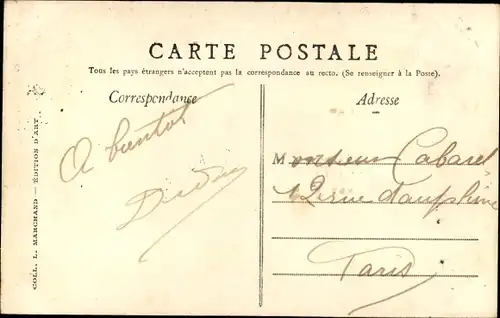 CARTE POSTALE
Tous les pays étrangers n'acceptent pas la correspondance au recto. (Se renseigner à la Poste).
Correspondance
Adresse
A bientôt
Monsieur Cabaret
12 rue Dauphine
Paris
COLL. L. MARCHAND — ÉDITION D'ART